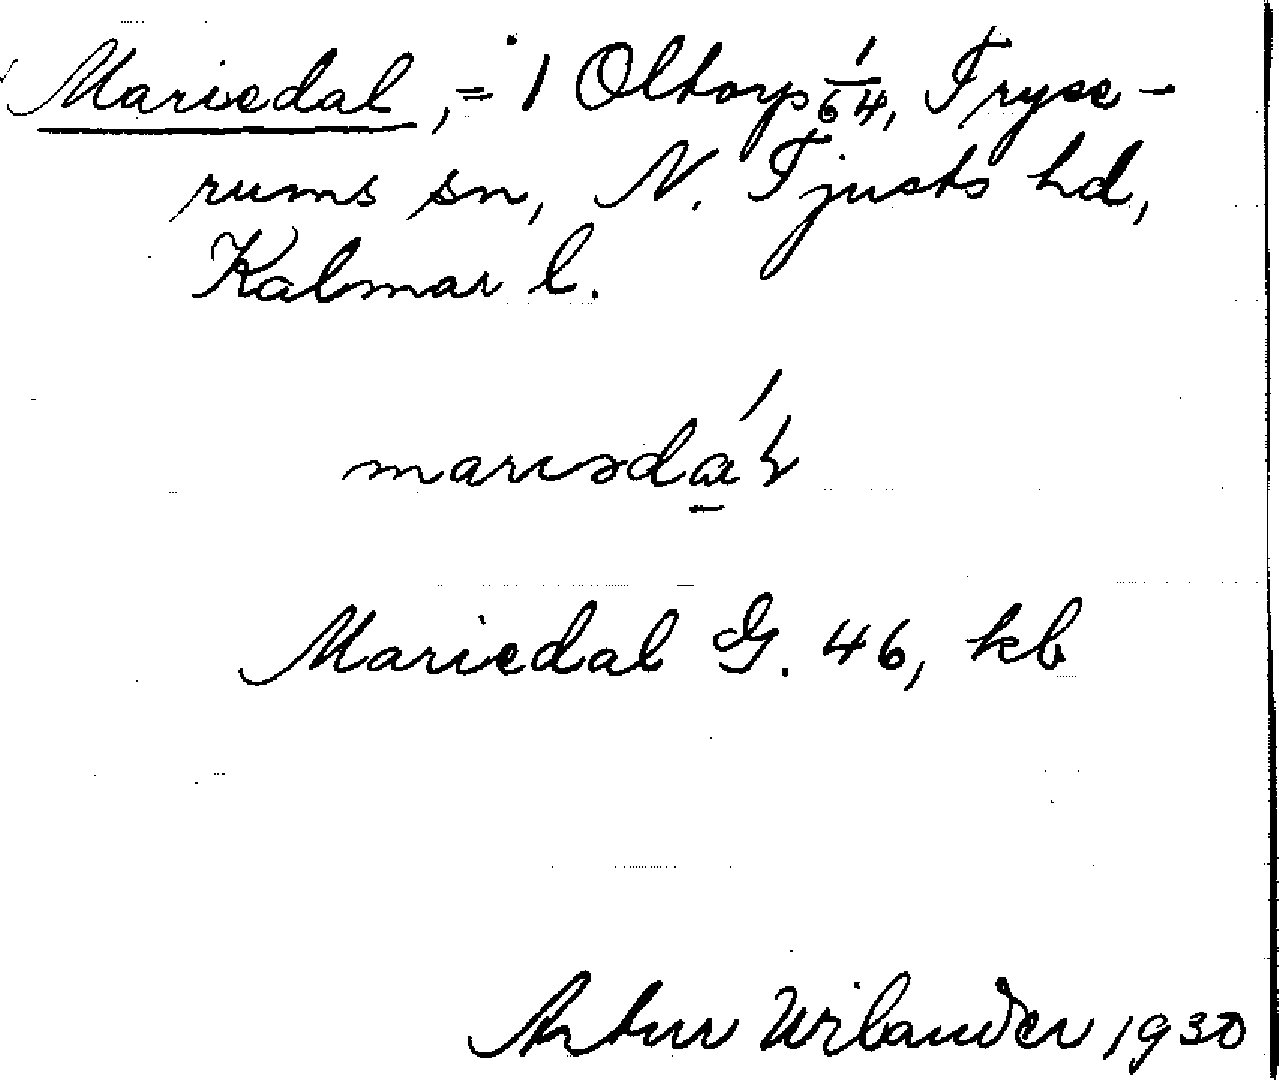 Mariedal, = 1 Oltorp 1/64, Tryse-
rums sn, N. Tjusts hd,
Kalmar l.
marısdáʹl
Mariedal G. 46, kb
Artur Wilander 1930